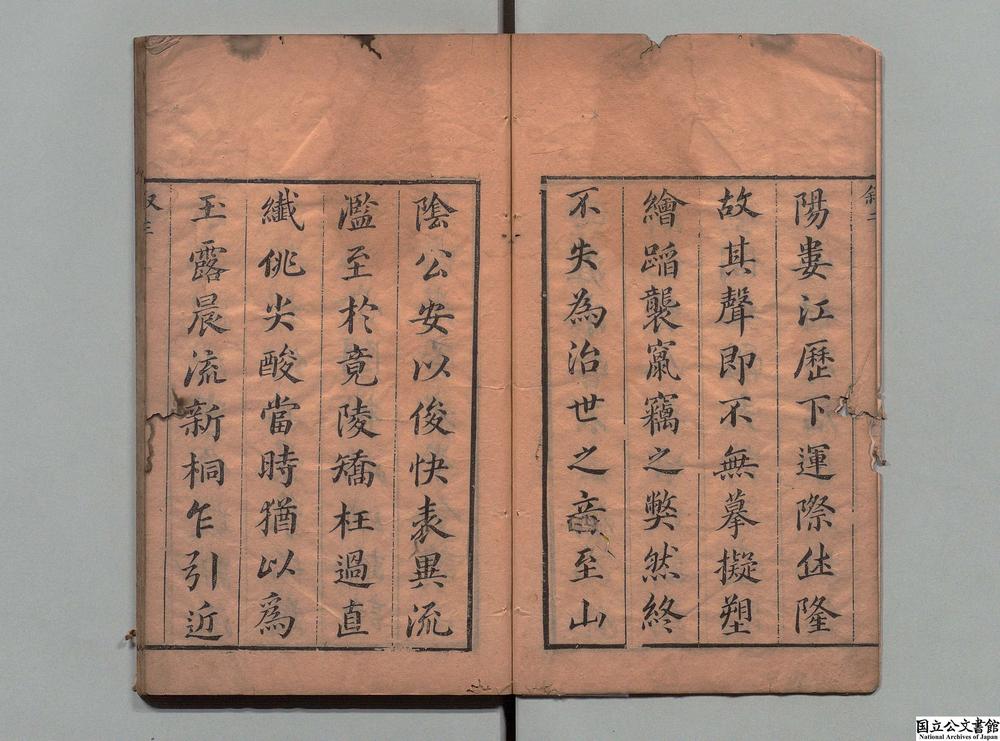 陽婁江歷下運際休隆
故其聲即不無摹擬塑
繪蹈襲竄竊之弊然終
不失為治世之音至山
陰公安以俊快表異流
濫至於竟陵矯枉過直
纖佻尖酸當時猶以爲
玉露晨流新桐乍引近
国立公文書館
National Archives of Japan